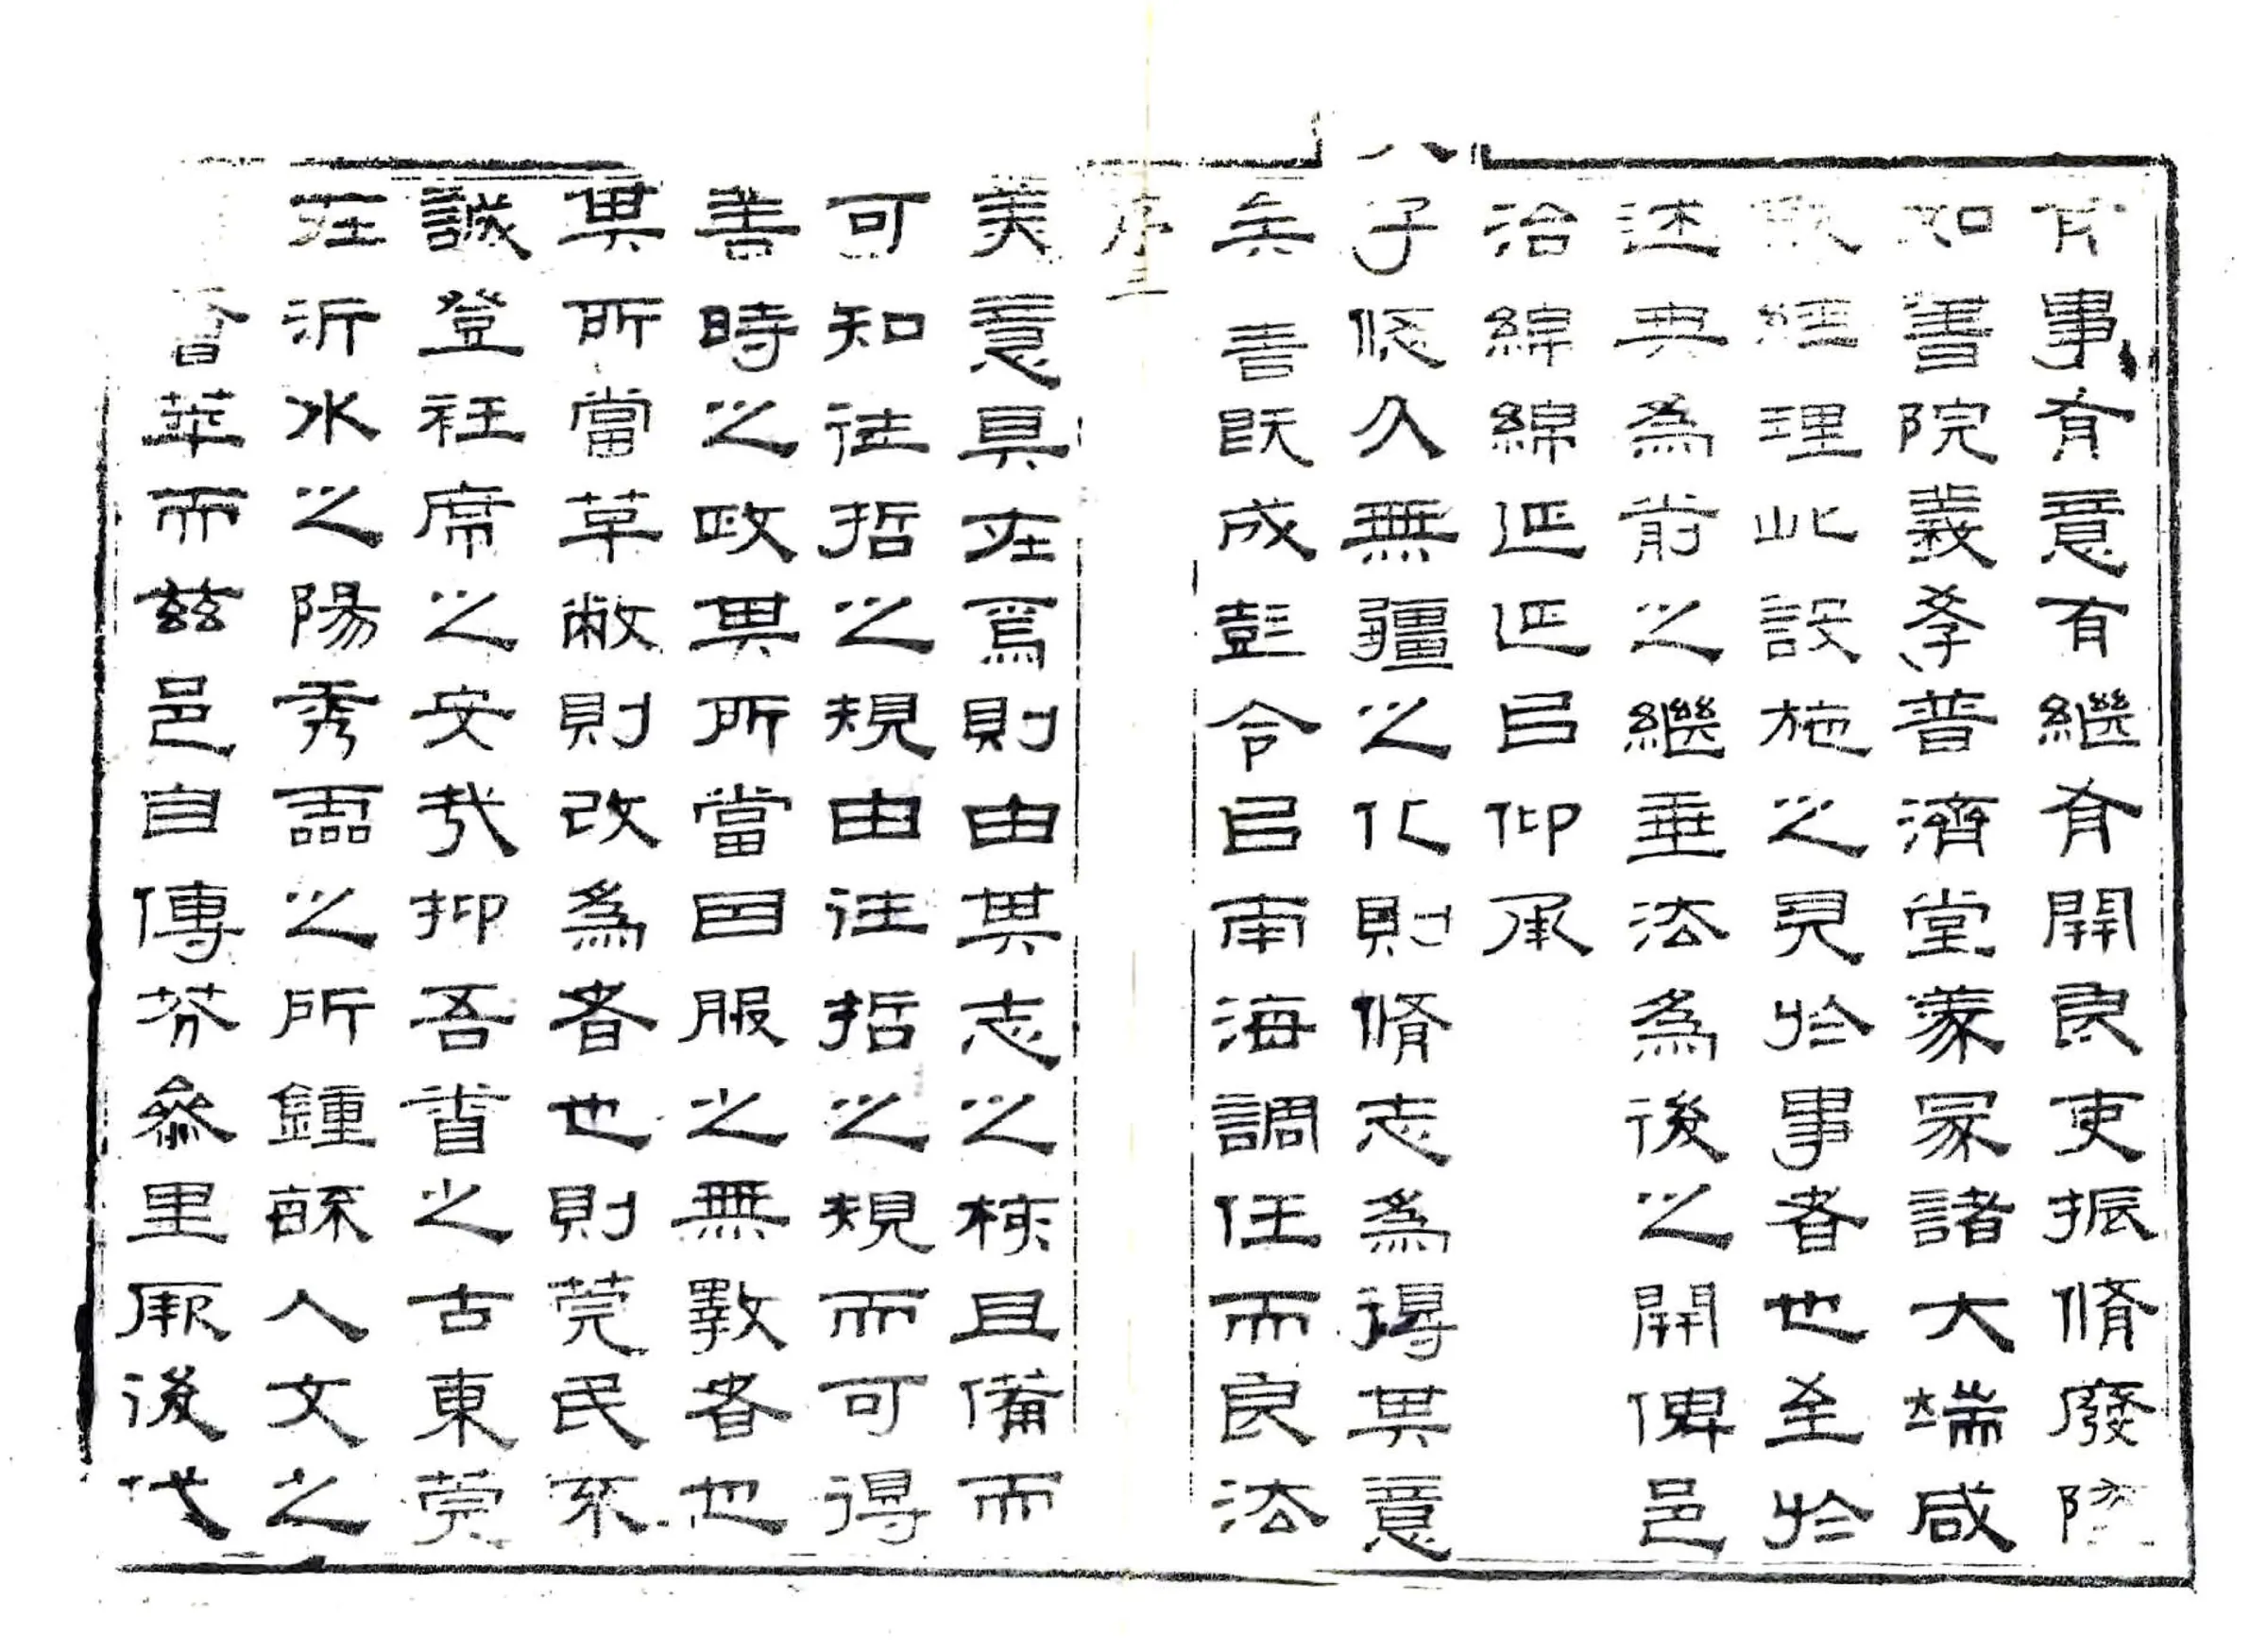 有事有意有繼有開良吏振脩廢
如書院義學普濟堂義冢諸大端咸
經理此設施之見於事者也至於
述典為前之繼垂法為後之開俾邑
治綿綿延延㠯仰承
天子悠久無疆之化則脩志為得其意
矣書既成彭令㠯南海調任而良法
序三
美意具在焉則由其志之核且備而
可知往哲之規由往哲之規而可得
善時之政其所當因服之無斁者也
其所當革敝則改為者也則莞民不
誠登衽席之安哉抑吾省之古東莞
在沂水之陽秀靈之所鍾毓人文之
薈萃而茲邑自傳芬參里厥後代